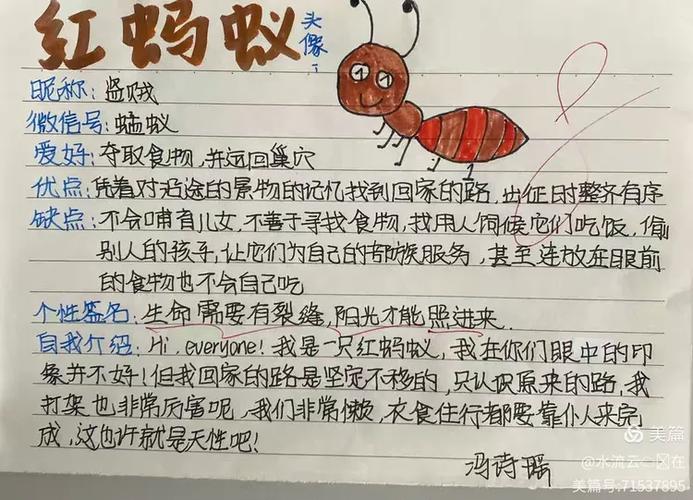 红蚂蚁
头像:
昵称:盗贼
微信号:蚂蚁
爱好:夺取食物,并运回巢穴
优点:凭着对沿途的景物的记忆找到回家的路,出征时整齐有序
缺点:不会哺育儿女,不善于寻找食物,找用人伺候它们吃饭,偷
别人的孩子,让它们为自己的部族服务,甚至连放在眼前
的食物也不会自己吃
个性签名:生命需要有裂缝,阳光才能照进来.
自我介绍:Hi,everyone!我是一只红蚂蚁,我在你们眼中的印
象并不好!但我回家的路是坚定不移的,只认识原来的路,我
打架也非常厉害呢,我们非常懒,衣食住行都要靠仆人来完
成,这也许就是天性吧!
冯诗瑶
美篇
@水流云在
美篇号:71537895